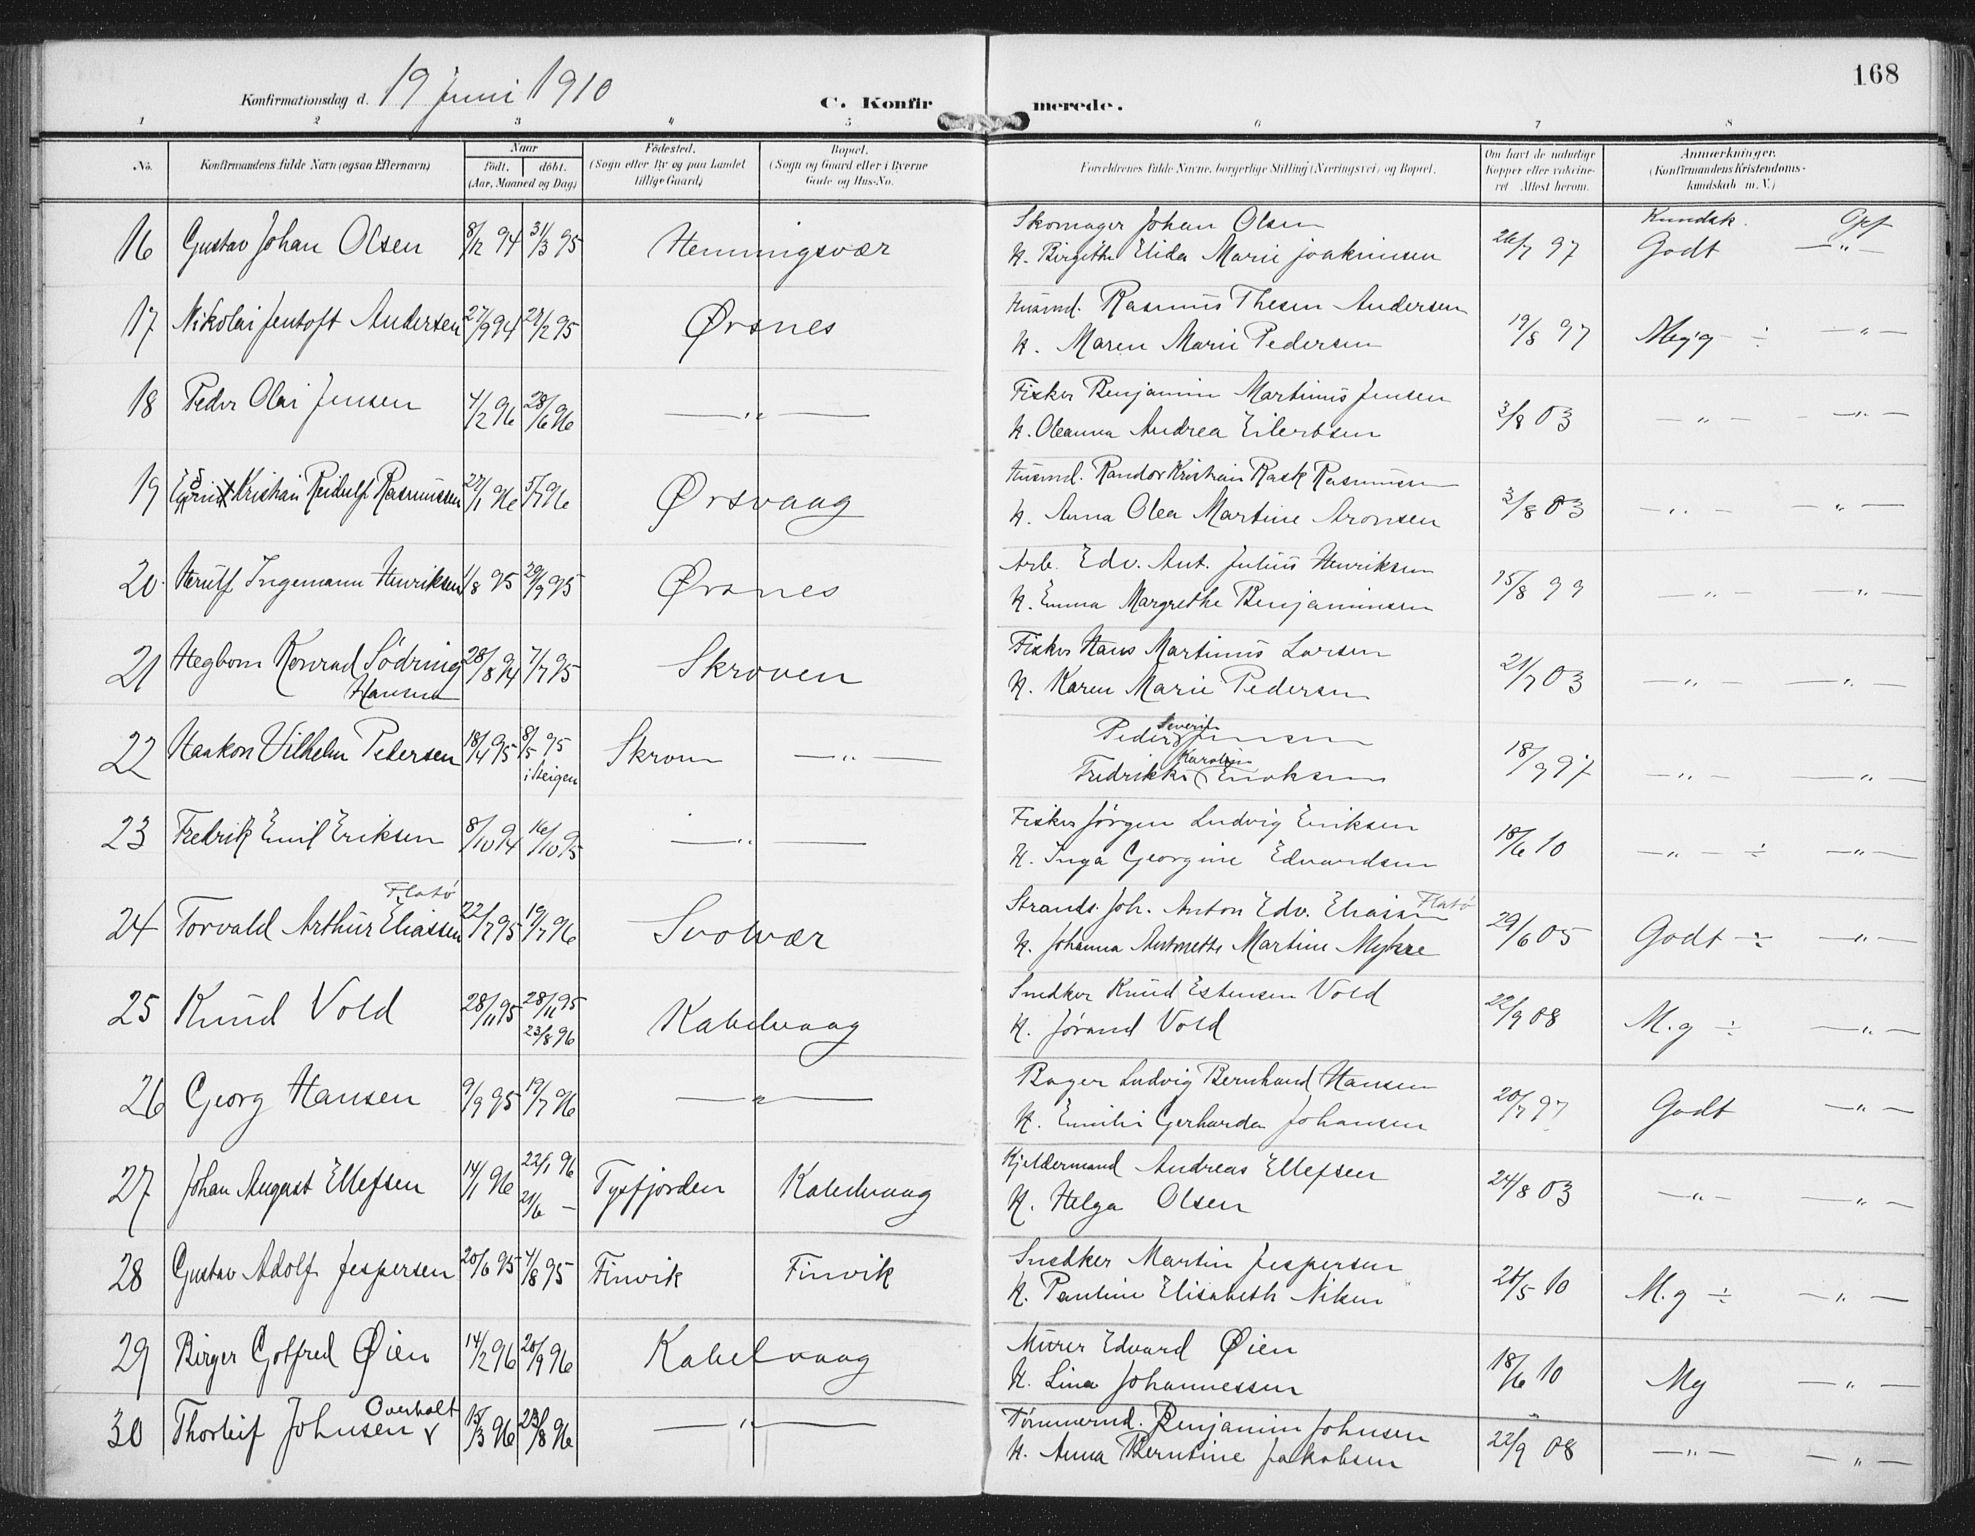 168
Konfirmationsdag d. 19 juni 1910
C. Konfirmerede.
1 2 3 4 5 6 7 8
No. Konfirmandens fulde Navn (ogsaa Efternavn) Naar født. døbt. (Aar, Maaned og Dag) Fødested. (Sogn eller By og paa Landet tillige Gaard) Bopæl. (Sogn og Gaard eller i Byerne Gade og Hus-No. Forældrenes fulde Navne, borgerlige Stilling (Næringsvei) og Bopæl. Om havt de naturlige Kopper eller vakcineret Attest herom. Anmærkninger. (Konfirmandens Kristendomskundskab m. V.)
Skomager Johan Olsen Kundsk. Opf
16 Gustav Johan Olsen 8/12 94 31/3 95 Henningsvær
H. Birgithe Elida Marie Joakimsen 26/7 97 Godt —"—
17 Nikolai Jentoft Andersen 27/9 94 24/2 95 Ørsnes
Husmd. Rasmus Thesen Andersen
H. Maren Marie Pedersen 19/8 97 Meg g ÷ —"—
18 Peder Olai Jensen 4/2 96 28/6 96 —"—
Fisker Benjamin Martinus Jensen
H. Oleanna Andrea Eilertsen 3/8 03 —"— —"—
19 Kristian Reidulf Rasmussen 27/1 96 5/7 96 Ørsvaag
Husmd. Randor Kristian Rask Rasmussen
H. Anna Olea Martine Aronsen 3/8 03 —"— —"—
20. Herulf Ingemann Henriksen 1/8 95 29/9 95 Ørsnes
Arb. Edv. Ant. Julius Henriksen
H. Emma Margrethe Benjaminsen 15/8 99 —"— —"—
21 Hegbom Konrad Södring 28/8 94 7/7 95 Skroven
Hansen
Fisker Hans Martinus Larsen
H. Karen Marie Pedersen 21/7 03 —"— —"—
22 Haakon Vilhelm Pedersen 18/4 95 8/5 95 Skroven —"—
i Steigen
Severin
Peder Jensen
Karoline
Fredrikke Enoksen 18/9 97 —"— —"—
23 Fredrik Emil Eriksen 8/10 94 16/10 95 —"—
Fisker Jørgen Ludvig Eriksen
H. Inga Georgine Edvardsen 18/6 10 —"— ÷ —"—
Flatö
24 Torvald Arthur Eliassen 22/7 95 19/7 96 Svolvær
Strands. Joh. Anton Edv. Eliassen Flatö
H. Johanna Antonette Martine Myhre 29/6 05 Godt ÷ —"—
25 Knud Vold 28/11 95 28/11 95 Kabelvaag
23/8 96
Snedker Knud Estensen Vold
H. Jørand Vold 22/9 08 M.g ÷ —"—
26 Georg Hansen 9/9 95 19/7 96 —"—
Bager Ludvig Bernhard Hansen
H. Emilie Gerharda Johansen 20/7 97 Godt —"—
27 Johan August Ellefsen 14/1 96 22/1 96 Tysfjorden Kabelvaag
21/6 —
Kjeldermand Andreas Ellefsen
H. Helga Olsen 24/8 03 —"— —"—
28 Gustav Adolf Jespersen 20/6 95 4/8 95 Finvik Finvik
Snedker Martin Jespersen
H. Pauline Elisabeth Nilsen 28/5 10 M.g ÷ —"—
29 Birger Gotfred Øien 14/2 96 20/9 96 Kabelvaag
Murer Edvard Øien
H. Lina Johannessen 18/6 10 Mg —"—
Overholt
30 Thorleif Johnsen 15/3 96 23/8 96 —"—
Tömmermd. Benjamin Johnsen
H. Anna Berntine Jakobsen 22/9 08 —"— —"—